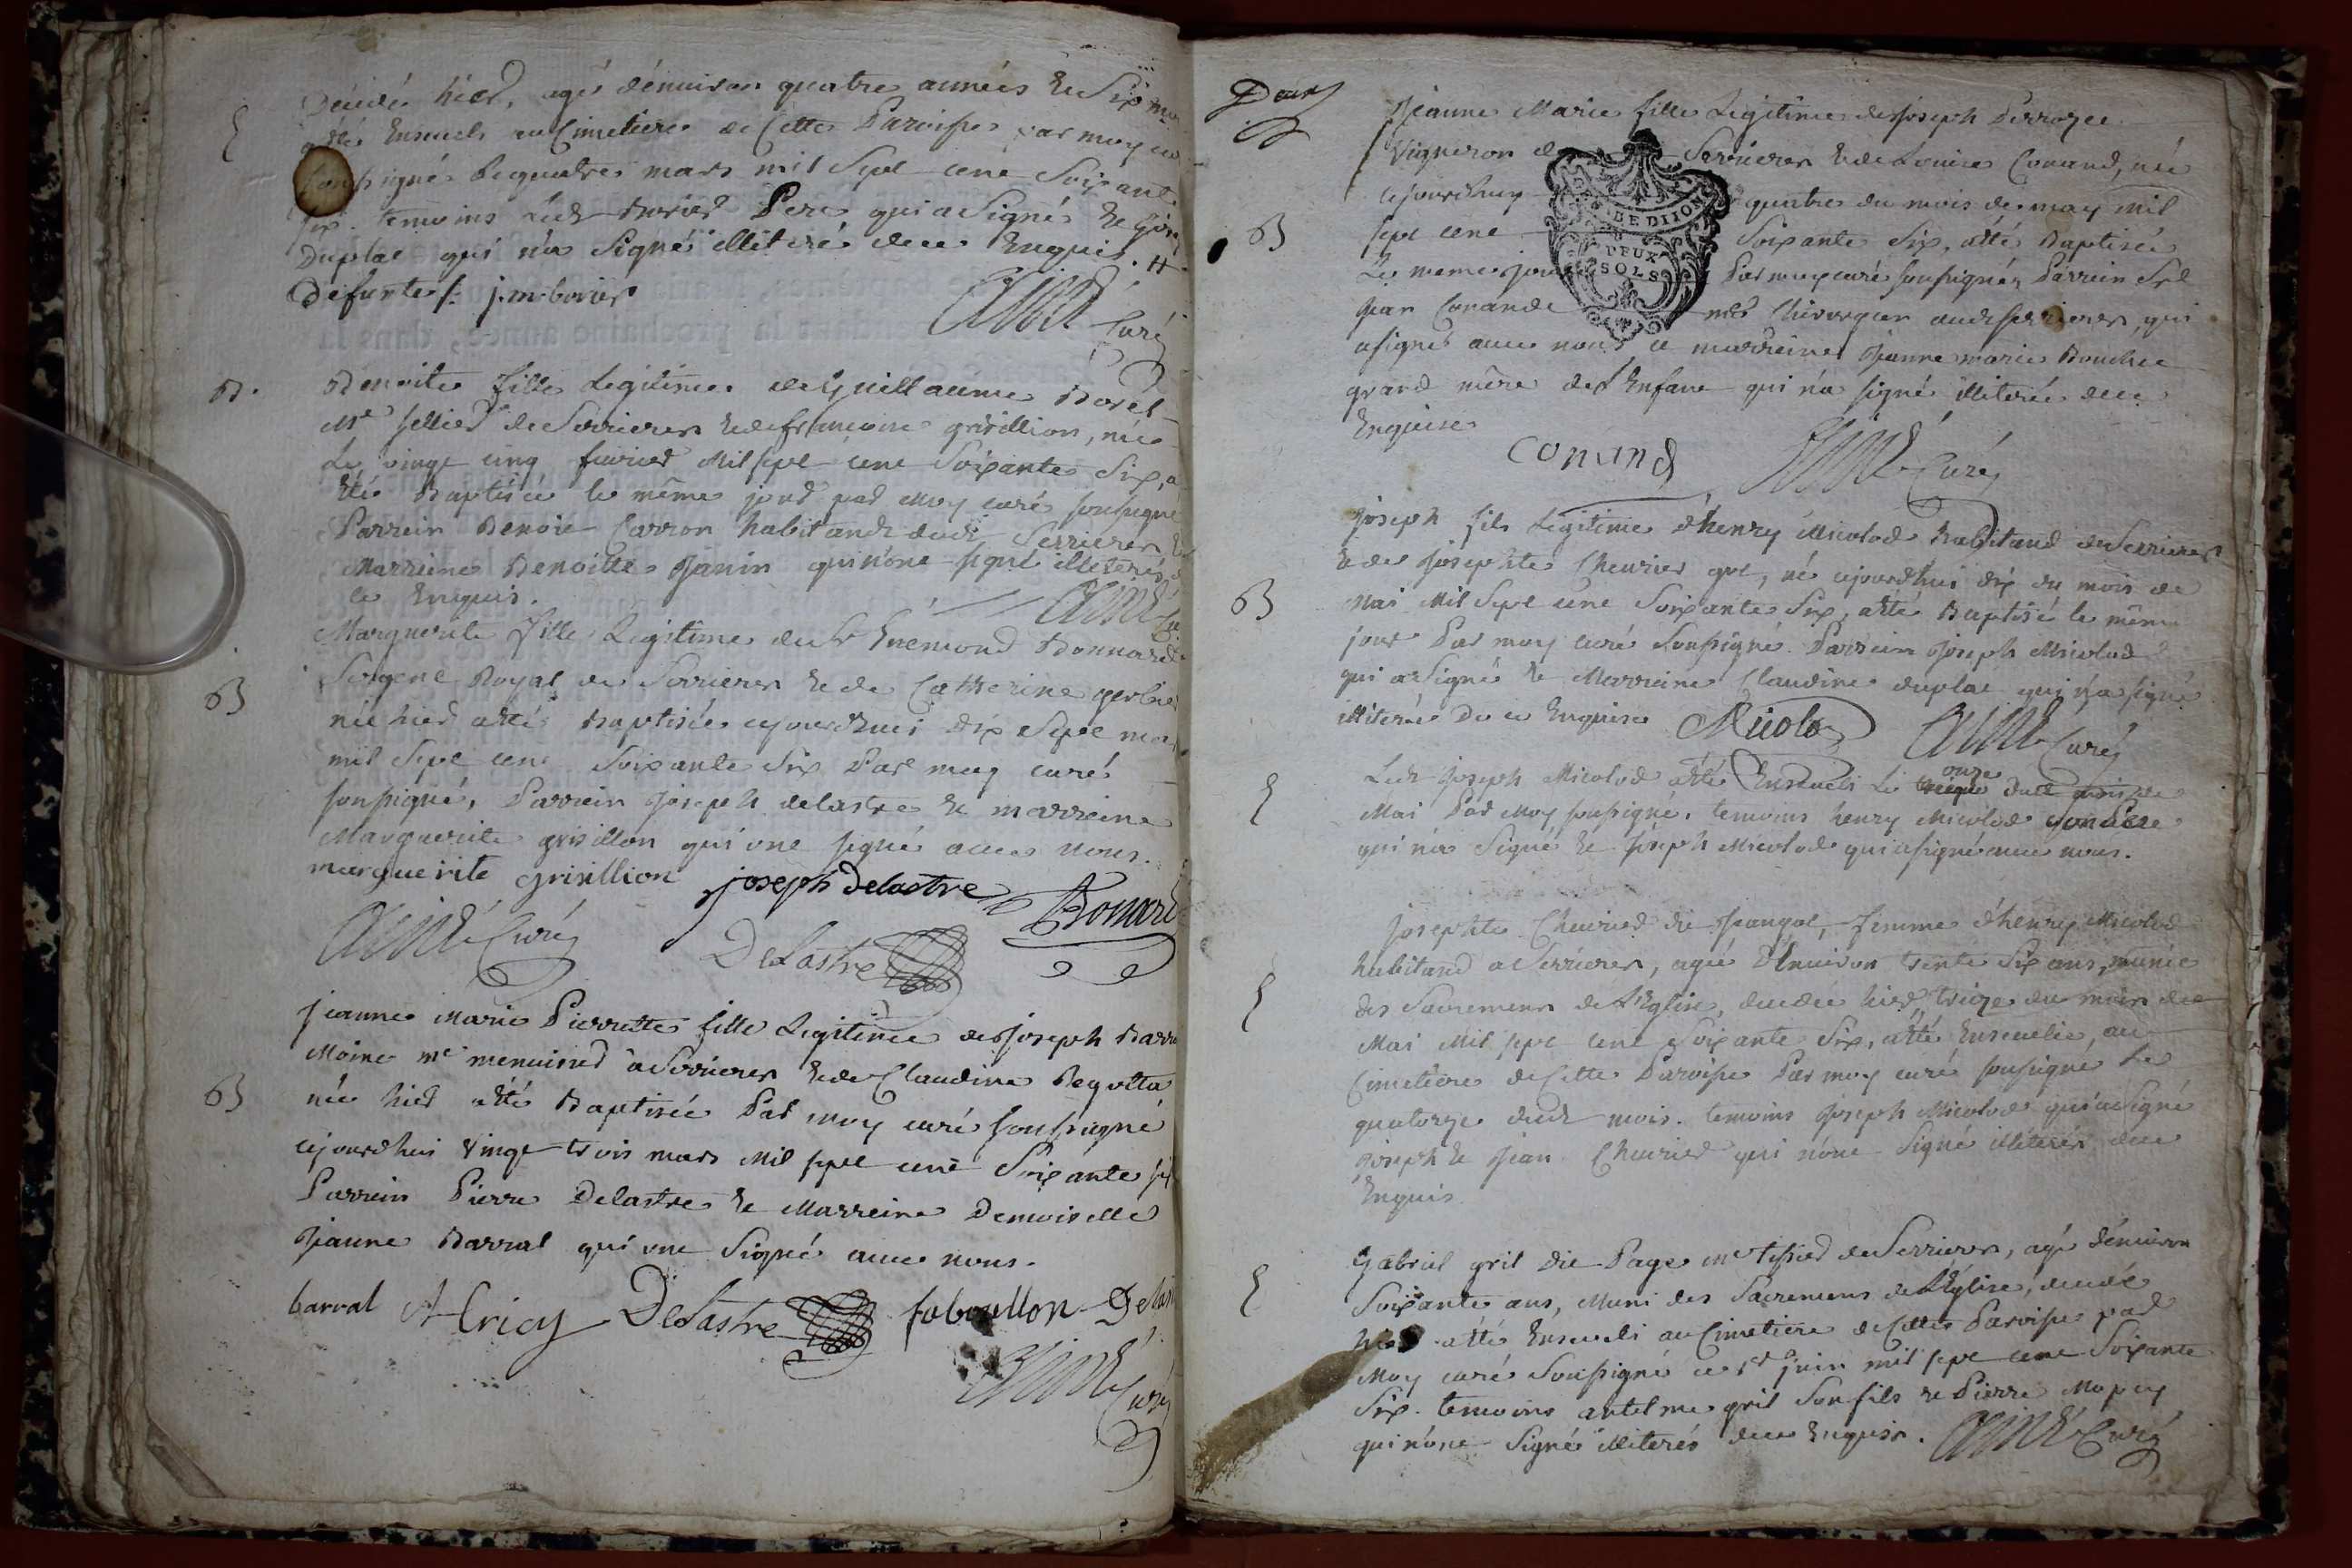 Décédé hier, agé dénviron quatre années Et Six
E
a été Enseveli au Cimetiere de Cette Paroisse par moy
soussigné le quatre mars mil Sept cent Soixante
six. temoins Ledt Borier Pere qui a Signé Et
Duplat qui n'a Signé illiteré de ce Enquis. #
Defunte /: j. m. borier
Curé
B.
Benoite fille Legitime de Guillaume Borel
Me sellier de Serrieres Et de françoise grisillion, née
Le vingt cinq fevrier Mil sept cent Soixante Six, a
Eté Baptisée le même jour par Moy curé soussigné
Parrein Benoit Carron habitant dudt Serrieres Et
Marreine Benoitte Janin qui n'ont signé illeterés de
ce Enquis.
Marguerite fille Legitime de Sr Enemond Bonnard
B
Sergent Royal de Serrieres Et de Catherine
née hier a été Baptisée cejourdhui dix Sept
mil Sept cent Soixante Six Par moy curé
soussigné, Parrein Joseph delastre Et marreine
Marguerite grisillon qui ont signé avec nous.
marguerite grisillion joseph delastre Bonard
Curé Delastre
Jeanne Marie Pierrette fille Legitime de Joseph
Moine me menuisier à Serrieres Et de Claudine
B
née hier a été Baptisée Par moy curé soussigné
cejourdhui vingt trois mars Mil sept cent Soixante
Parrein Pierre Delastre Et Marreine Demoiselle
Jeanne Barral qui ont Signé avec nous.
barral Delastre
Curé
Jeanne Marie fille Legitime de Joseph Perrozet
Vigneron de Serrieres Et de Louise Conand, née
GEN. DE DIJON
DEUX
SOLS
cejourdhuy quatre du mois de may mil
B
sept cent Soixante Six, a été Baptisée
Le meme jour Par moy curé soussigné, Parrein Sr
Jean Conand me Chirurgien audt serrieres, qui
a signé avec nous et marreine Jeanne marie
grand mère de L'Enfant qui n'a signé illiterée de ce
Enquise
conand Curé
Joseph fils Legitime d'henry Micolod habitand de Serrieres
Et de Josephte Chevrier, né cejourdhui dix du mois de
B
Mai Mil Sept cent Soixante Six, a été Baptisé le même
jour Par moy curé Soussigné. Parrein Joseph Micolod
qui a Signé Et Marreine Claudine duplat qui n'a signé
illiterée De ce Enquise Micolo Curé
onze
Ledt Joseph Micolod a été Enseveli Le dudt mois de
E
Mai Par Moy soussigné, temoins henry Micolod son Pere
qui n'a Signé Et Joseph Micolod qui a signé avec nous.
Josephte Chevrier, femme d'henry Micolod
habitand a Serrieres, agée D'Environ trente Six ans, munie
E
des Sacremens de L'Eglise, decedée hier treize du mois de
Mai Mil sept cent Soixante Six, a été Ensevelie, au
Cimetiere de Cette Paroisse Par moy curé soussigné Le
quatorze dudt mois. temoins Joseph Micolod qui a Signé
joseph Et Jean Chevrier qui n'ont Signé illiterés de ce
Enquis
Gabriel gril dit Page me tissier de Serrieres, agé dénviron
E
Soixante ans, Muni des Sacremens de L'Eglise, decedé
hier a été Enseveli au Cimetiere de Cette Paroisse par
Moy curé Soussigné ce juin mil sept cent Soixante
Six. temoins antelme gril Son fils Et Pierre
qui n'ont Signé illiterés de ce Enquis. Curé